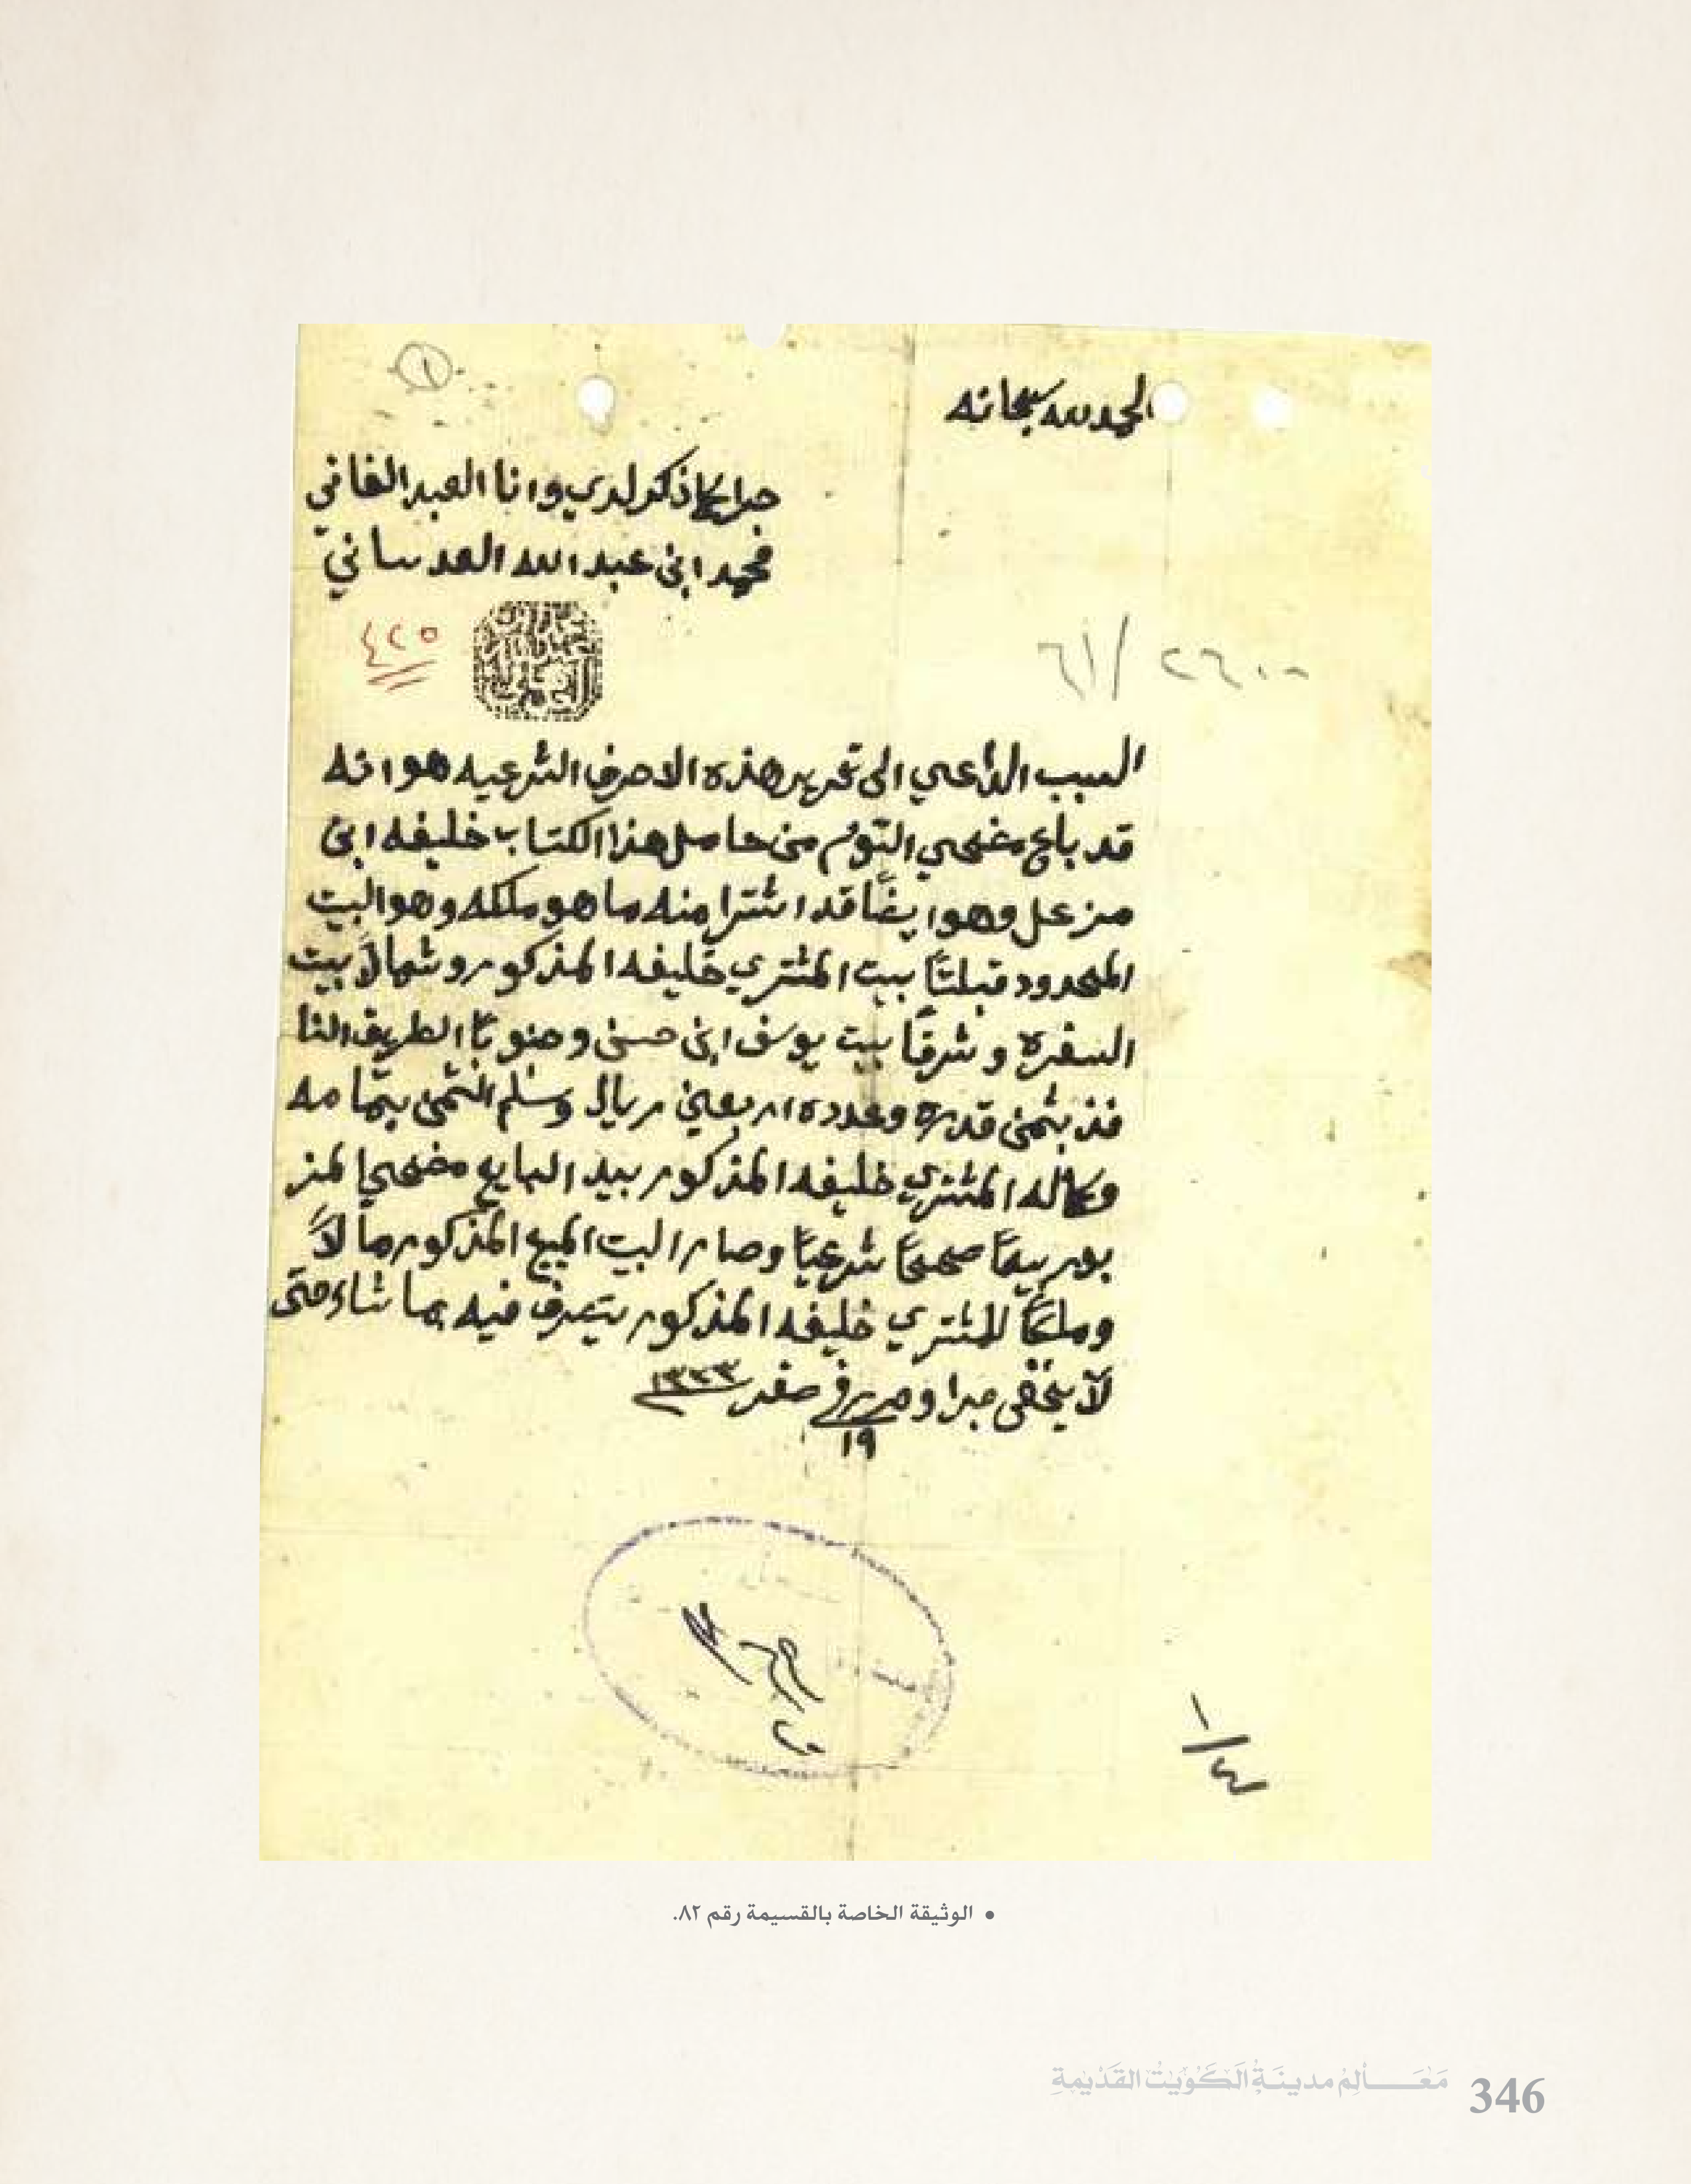 ١
الحمد لله سبحانه
جرا كما ذكر لدي وانا العبد الفاني
محمد ابن عبد الله العدساني
٤٢٥
٢٦٠٠ / ٦١
السبب الداعي الى تحرير هذه الاحرف الشرعيه هو انه
قد باع مضحي التوم من حامل هذا الكتاب خليفه ابن
مزعل وهو ايضًا قد اشترا منه ما هو ملكه وهو البيت
المحدود قبلتًا بيت المشتري خليفه المذكور وشمالاً بيت
السفره وشرقًا بيت يوسف ابن حسن وجنوبًا الطريق النا
فذ بثمن قدره وعدده اربعين ريال وسلم الثمن بتمامه
وكماله المشتري خليفه المذكور بيد البايع مضحي المز
بور بيعًا صحيحًا شرعيًا وصار البيت المبيع المذكور مالاً
وملكًا للمشتري خليفه المذكور يتصرف فيه بما شاء حتى
لا يخفى جرا وحرر في صفر ١٣٣٣
١٩
١/٤
• الوثيقة الخاصة بالقسيمة رقم ٨٢.
مَعَـــالِمُ مدينَةِ الكُوَيْتْ القَدْيْمةِ 346